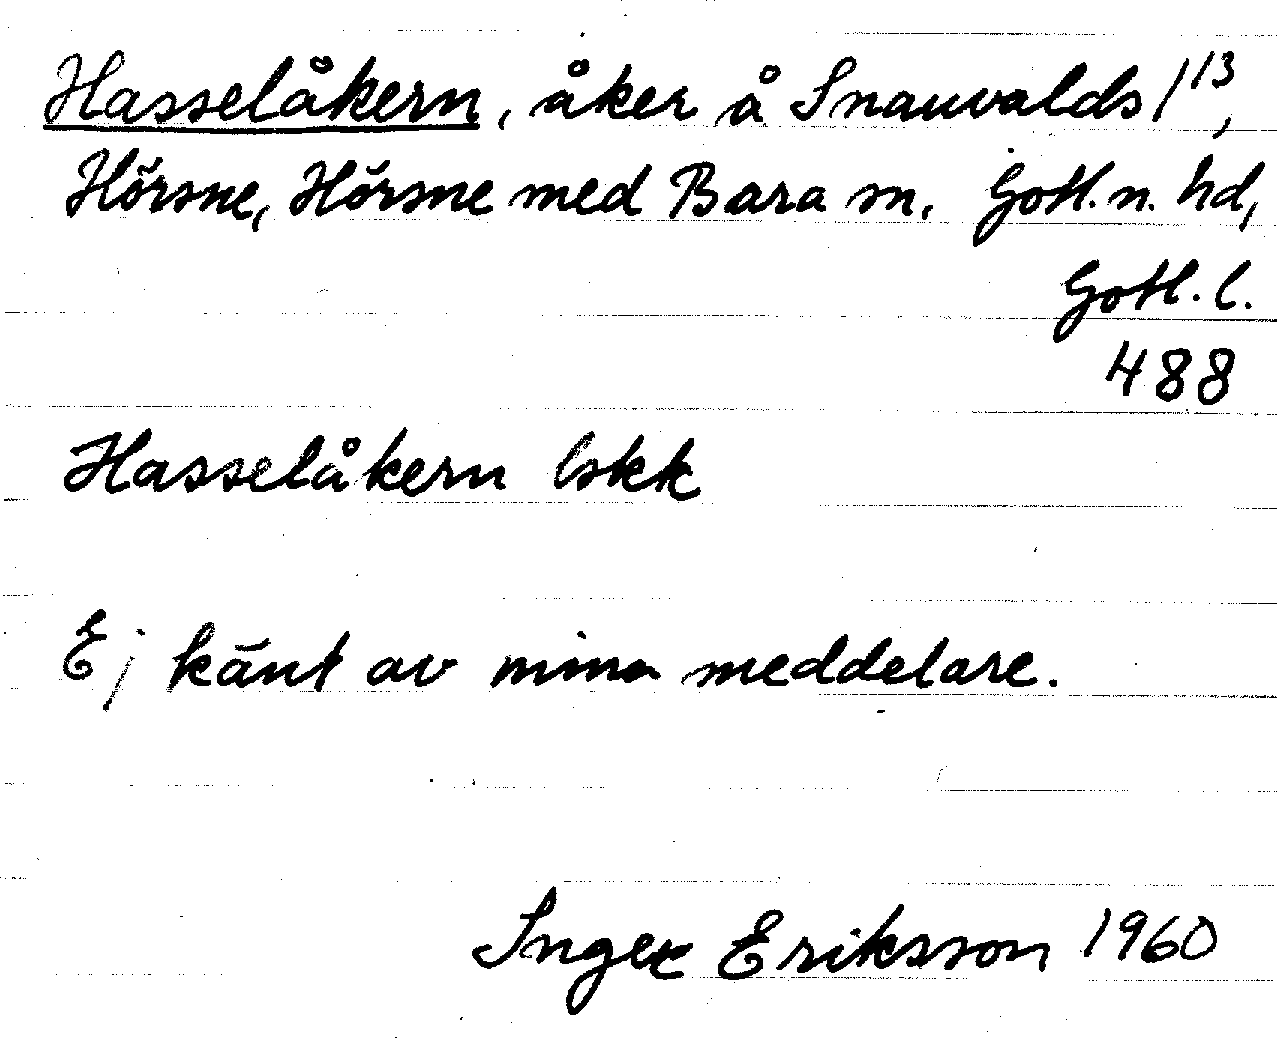 Hasselåkern, åker å Snauvalds 1¹³,
Hörsne, Hörsne med Bara sn. Gotl. n. hd,
Gotl. l.
488
Hasselåkern lskk
Ej känt av mina meddelare.
Inger Eriksson 1960